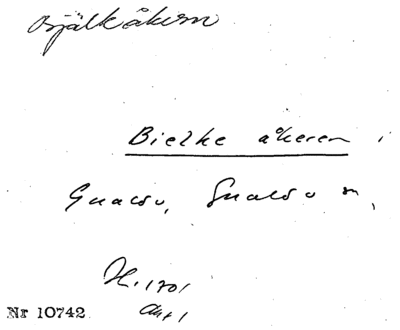 Bjälkåkern
Bielke åkeren,
Gualöv, Gualöv sn,
H. 1701
Akt 1
Nr 10742